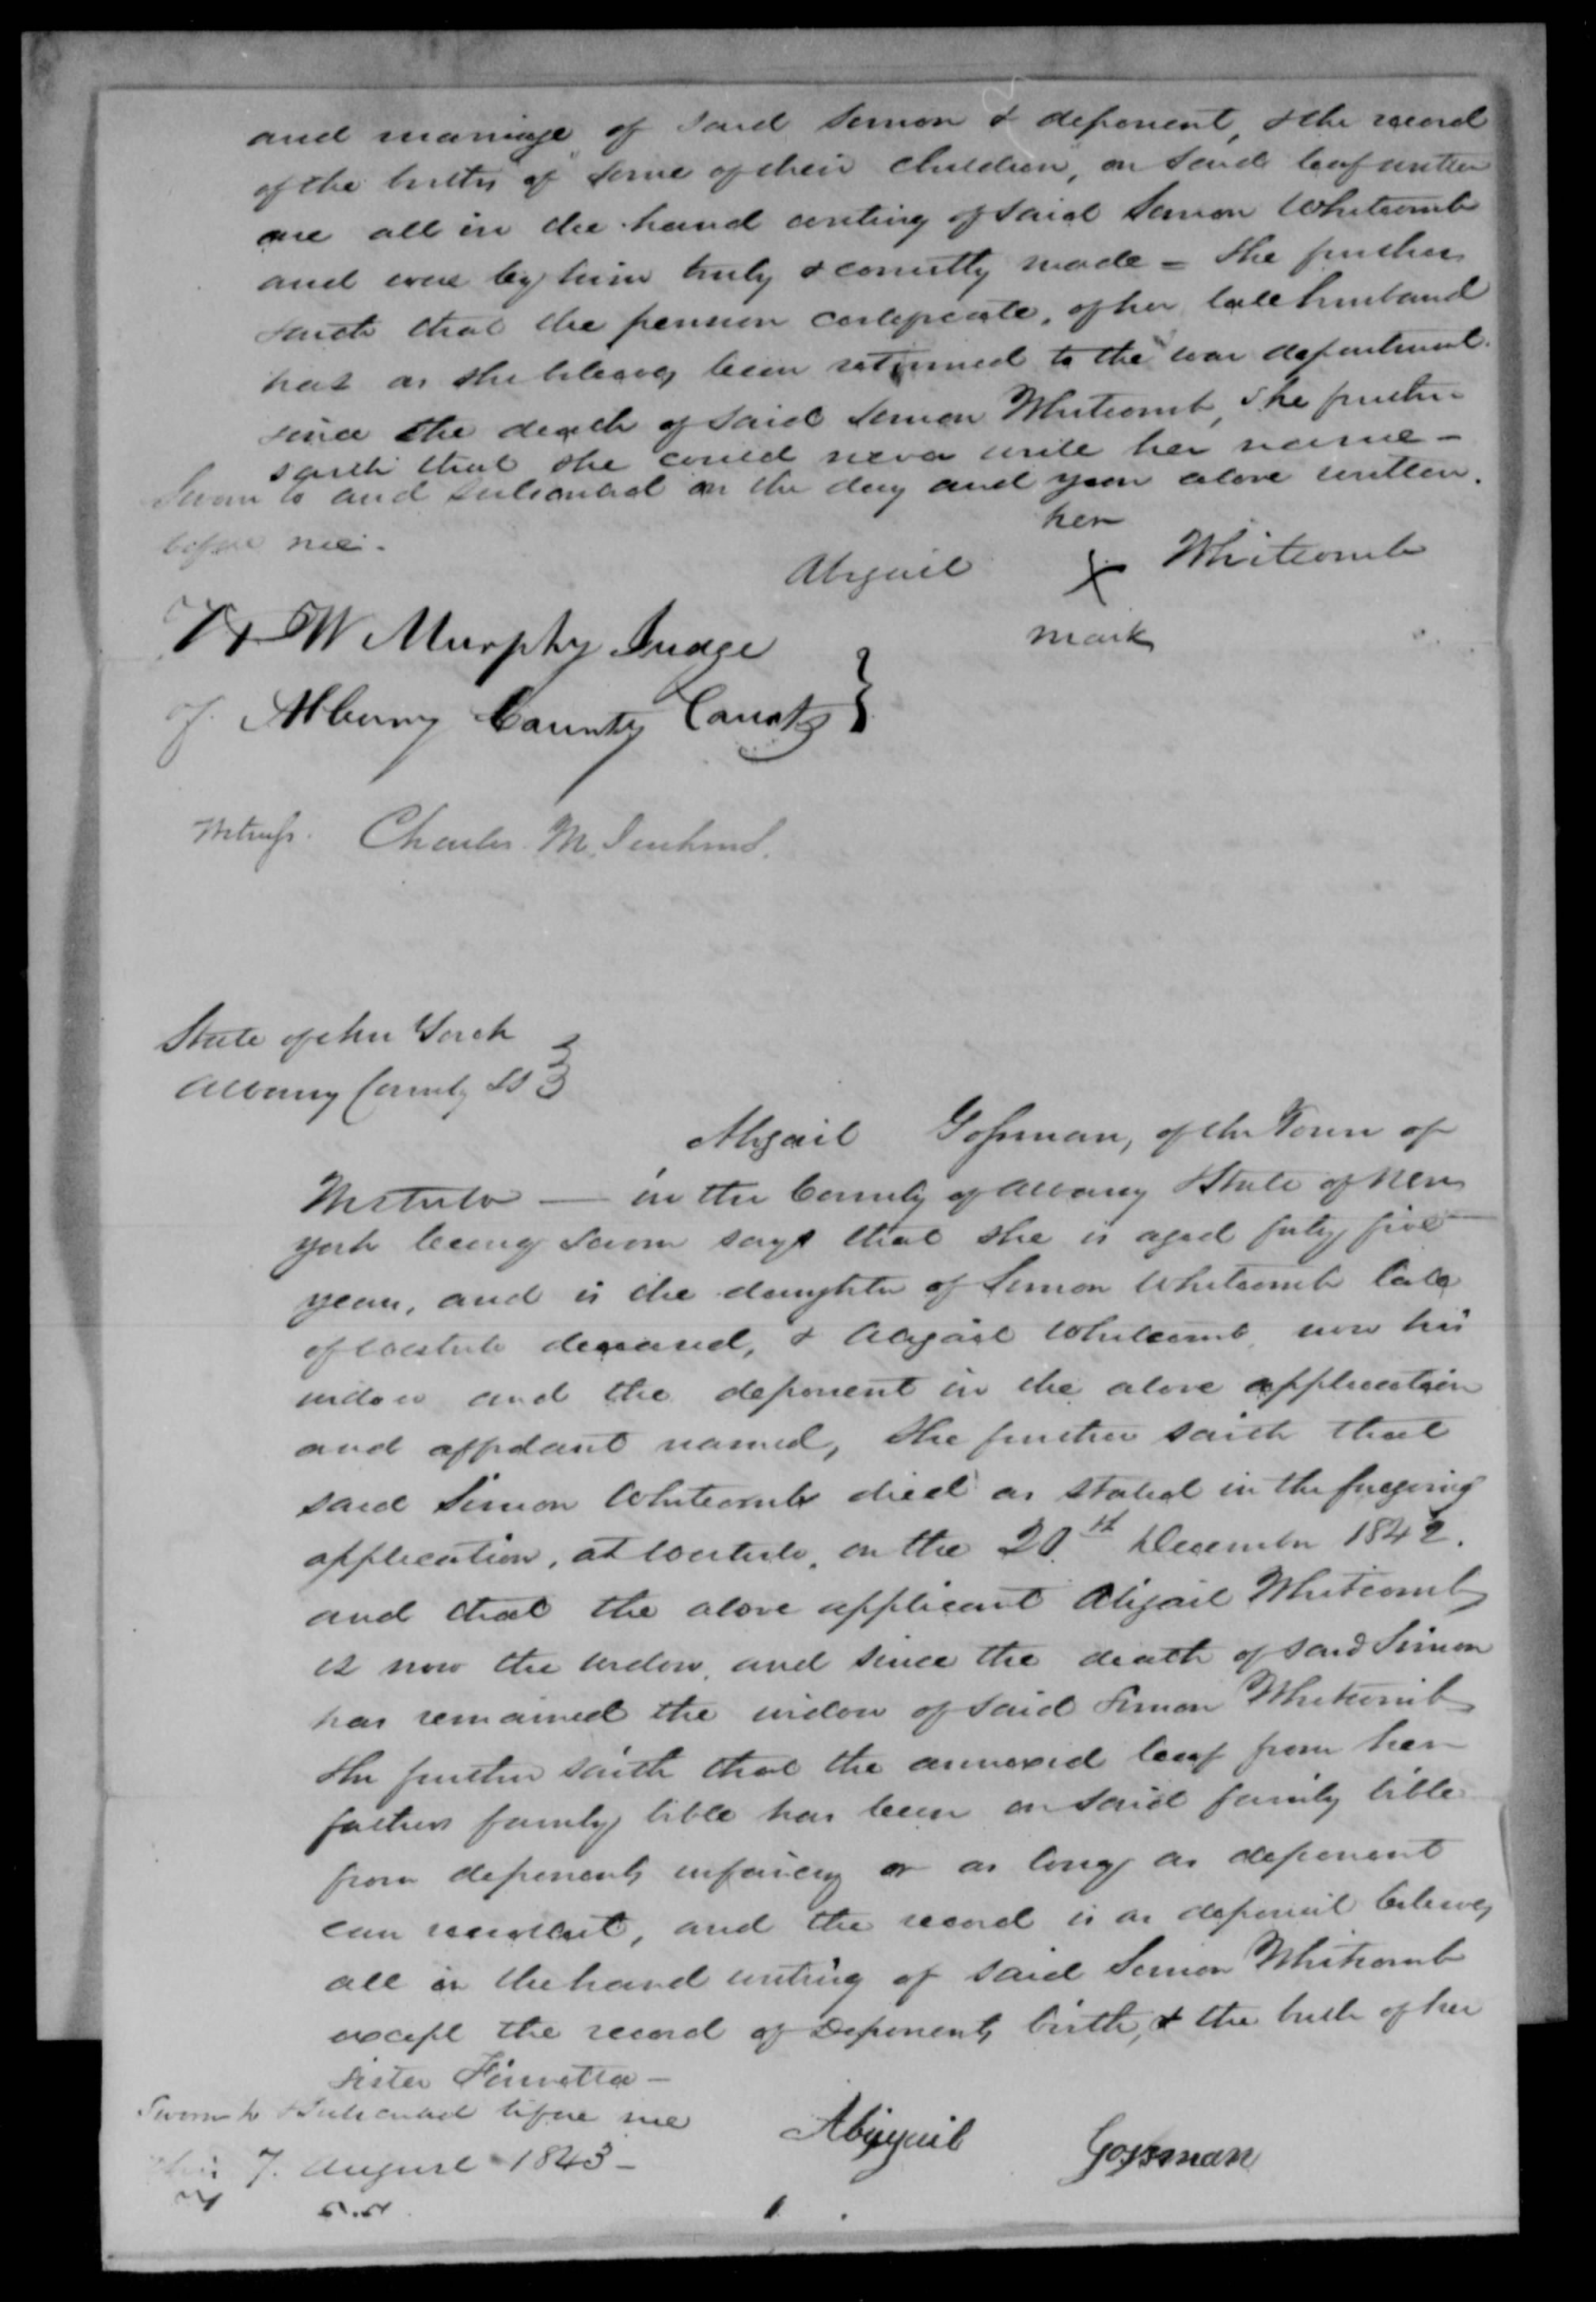 and marriage of said Simon & deponent, & the record
of the births of some of their children, on said leaf written
are all in the hand writing of said Simon Whitcomb
and were by him truly & correctly made = She further
saith that the pension certificate, of her late husband
has as she believes been returned to the war department.
since the death of said Simon Whitcomb, She further
saith that she could never write her name -
Sworn to and subscribed on the day and year above written.
before me.
her
Abigail X Whitcomb
mark
W Murphy Judge
of Albany County Courts }
Witness. Charles M.
State of New York
Albany County SS
Abigail Gossman, of the Town of
Westerlo — in the County of Albany & State of New
York being Sworn says that she is aged forty five
years, and is the daughter of Simon Whitcomb late
of Westerlo deceased, & Abigail Whitcomb, now his
widow and the deponent in the above application
and affidavit named, She further saith that
said Simon Whitcomb died as stated in the foregoing
application, at Westerlo, on the 20th December 1842.
and that the above applicant Abigail Whitcomb
is now the widow, and since the death of said Simon
has remained the widow of said Simon Whitcomb
She further saith that the annexed leaf from her
fathers family bible has been in said family bible
from deponents infancy or as long as deponent
can recollect, and the record is as deponent believes
all in the hand writing of said Simon Whitcomb
except the record of Deponents birth, & the birth of her
sister -
Sworn to & Subscribed before me
this 7. August 1843 -
Abigail Gossman